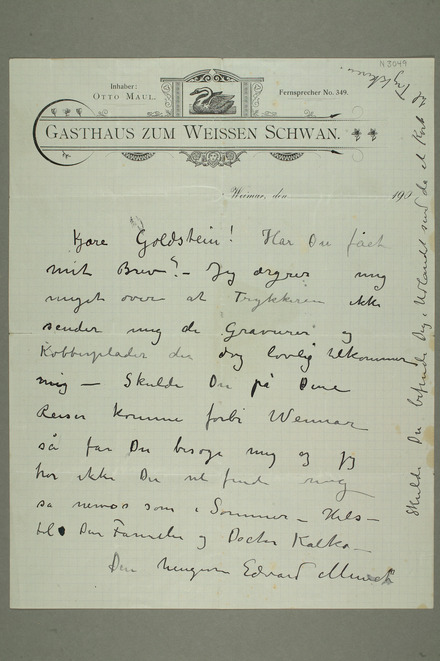 N 3049
Inhaber:
OTTO MAUL.
Fernsprecher No. 349.
GASTHAUS ZUM WEISSEN SCHWAN.
Weimar, den 190
Kjære Goldstein! Har Du fået
mit Brev? – Jeg ærgrer mig
meget over at Trykkeren ikke
sender mig de Gravurer og
Kobberplader der dog lovlig tilkommer
mig – Skulde Du på Dine
Reiser komme forbi Weimar
så får Du besøge mig og jeg
tror ikke Du vil finde mig
så nervøs som i Sommer – Hils –
til Din Familie og Doctor Kalko –
Din hengivne Edvard Munch
Skulde Du befinde Dig i Udlandet send da et Kort til
Trykkeren.